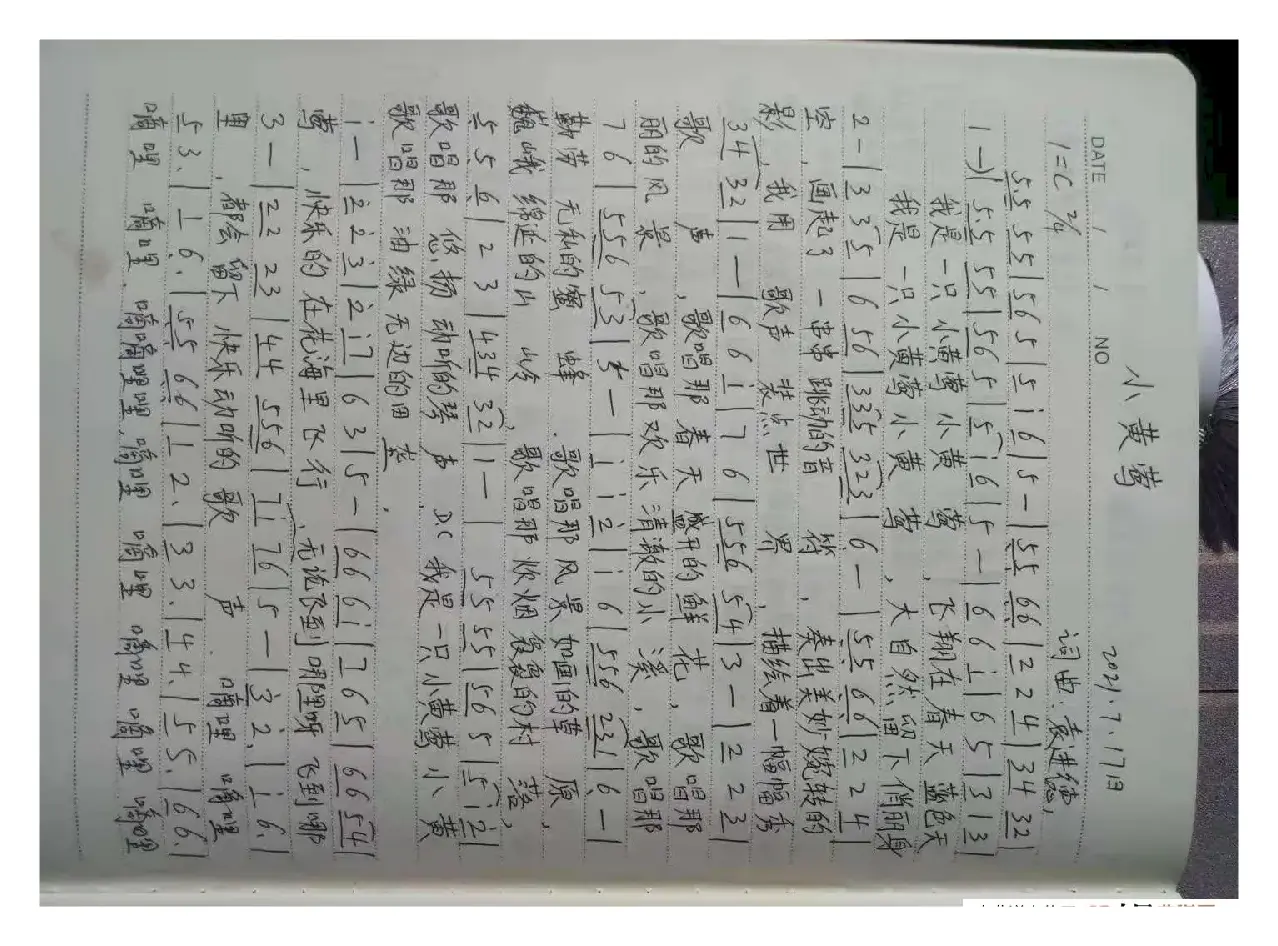 DATE / / NO
小黄莺 2021.7.17日
1=C 2/4 词曲:袁进
55 55|56 5|5 i 6|5 —|55 66|2 2 4|34 32|
1 —|55 55|56 5|5 i 6|5 —|6 6 i|6 5|3 1 3|
我是一只小黄莺小黄 莺 ,飞翔在 春天 蓝色天
我是一只小黄莺小黄 莺 ,大自然留下俏丽身
2 —|3 3 5|6 56|335 323|6 —|55 66|2 2 4|
空,画起了一串串跳动的音 符 ,奏出美妙婉转的
影,我用 歌声 装点世 界 ,描绘着一幅幅秀
34 32|1 —|6 6 i|7 6|556 54|3 —|2 2 3|
歌 声 ,歌唱那 春天 盛开的鲜 花,歌唱那
丽的风景,歌唱那欢乐清澈的小 溪,歌唱那
7 6|556 53|5 —|i i 2|i 6|556 231|6 —|
勤劳 无私的蜜 蜂 .歌唱那风景如画的草 原,
巍峨 绵延的山 岭 歌唱那炊烟袅袅的村 落,
5 5 6|2 3|434 32|1 — 55 55|56 5|5 i 2|
歌唱那 悠扬 动听的琴 声 . DC 我是一只小黄莺小 黄
歌唱那 油绿 无边的田 峦.
i —|2 2 3|2 i7|6 3|5 —|66 6i|7 6 5|6 6 54|
莺 ,快乐的在花海里飞行 .无论飞到哪里呀 飞到哪
3 —|22 23|44 556|7i 76|5 —|3 2.|i 6.|
里 ,都会留下 快乐动听的歌 声 .嘀哩 嘀哩
5 3.|1 6.|55 66|1 2.|3 3.|4 4.|5 5.|6 6.|
嘀哩 嘀哩.嘀嘀哩哩.嘀哩 嘀哩 嘀哩 嘀哩 嘀哩